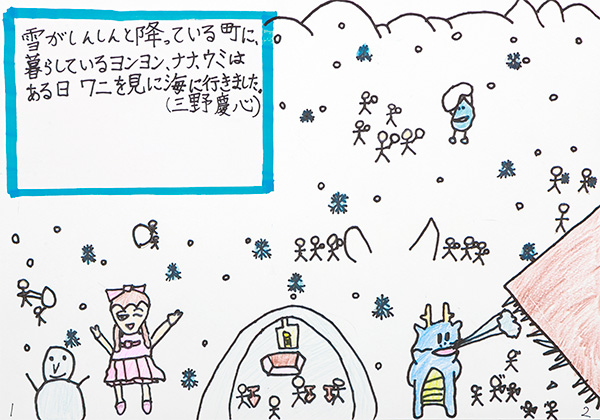 雪がしんしんと降っている町に、
暮らしているヨンヨン、ナナ、ウミは
ある日 ワニを見に海に行きました。
(三野慶心)
1
2